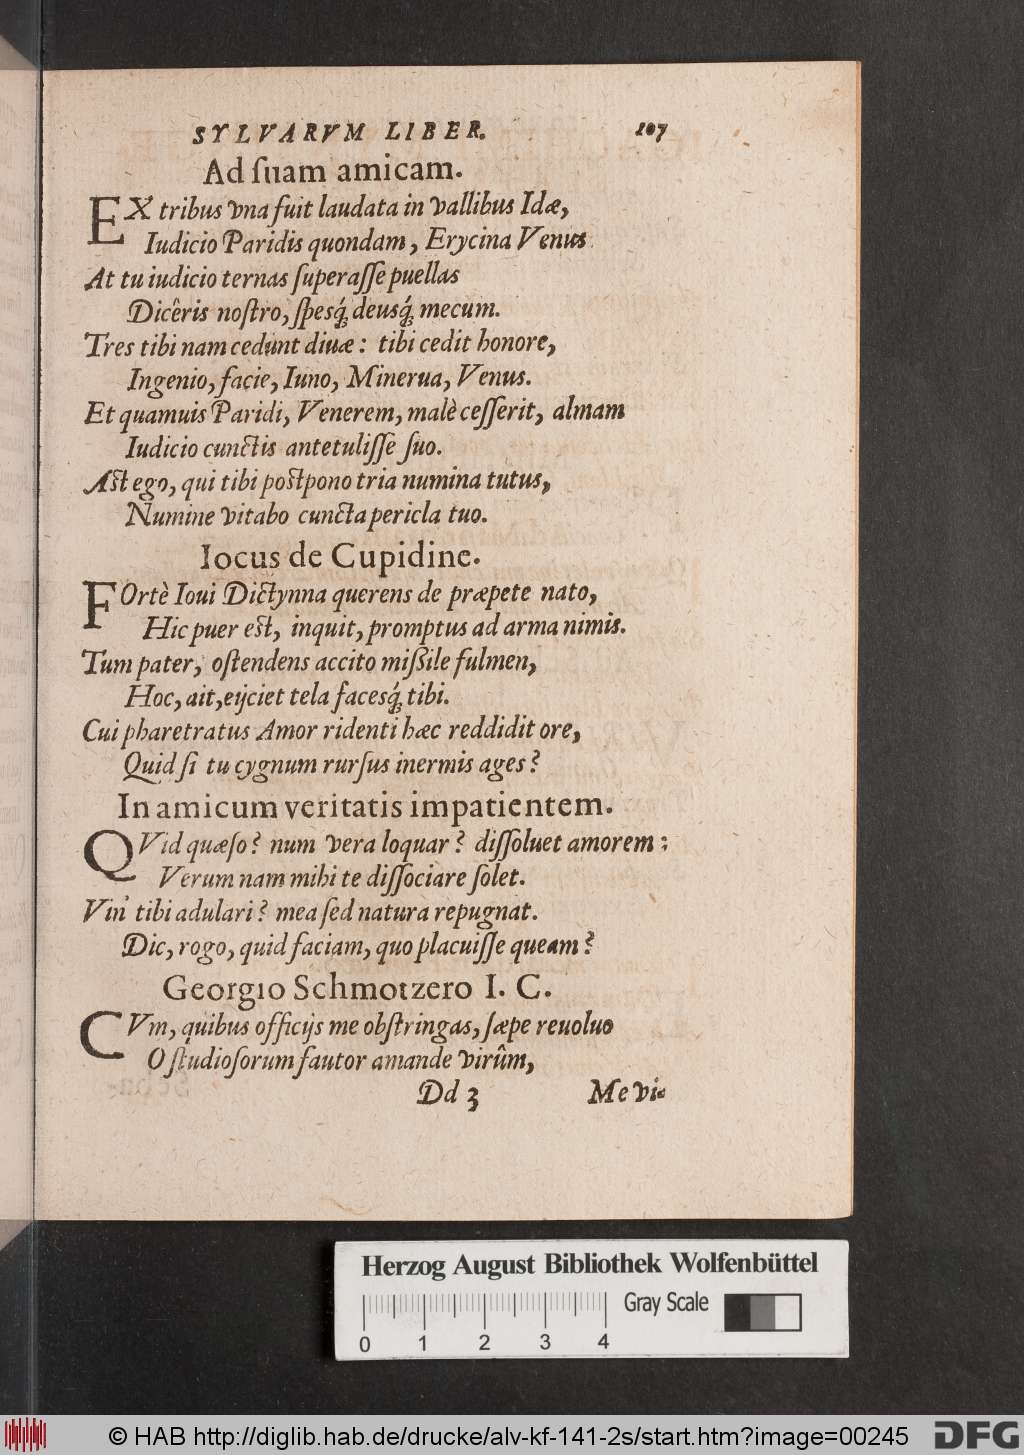 SYLVARVM LIBER. 107
Ad ſuam amicam.
EX tribus vna fuit laudata in vallibus Idæ,
Iudicio Paridis quondam, Erycina Venus
At tu iudicio ternas ſuperaſſe puellas
Dicêris noſtro, ſpesq́; deusq́; mecum.
Tres tibi nam cedunt diuæ: tibi cedit honore,
Ingenio, facie, Iuno, Minerua, Venus.
Et quamuis Paridi, Venerem, malè ceſſerit, almam
Iudicio cunctis antetuliſſe ſuo.
Aſt ego, qui tibi poſtpono tria numina tutus,
Numine vitabo cuncta pericla tuo.
Iocus de Cupidine.
FOrtè Ioui Dictynna querens de præpete nato,
Hic puer eſt, inquit, promptus ad arma nimis.
Tum pater, oſtendens accito mißile fulmen,
Hoc, ait, eijciet tela facesq́; tibi.
Cui pharetratus Amor ridenti hæc reddidit ore,
Quid ſi tu cygnum rurſus inermis ages?
In amicum veritatis impatientem.
QVid quæſo? num vera loquar? diſſoluet amorem:
Verum nam mihi te diſſociare ſolet.
Vin' tibi adulari? mea ſed natura repugnat.
Dic, rogo, quid faciam, quo placuiſſe queam?
Georgio Schmotzero I. C.
CVm, quibus officijs me obſtringas, ſæpe reuoluo
O ſtudioſorum fautor amande virûm,
Dd 3 Me vi-
Herzog August Bibliothek Wolfenbüttel
Gray Scale
0 1 2 3 4
© HAB http://diglib.hab.de/drucke/alv-kf-141-2s/start.htm?image=00245
DFG